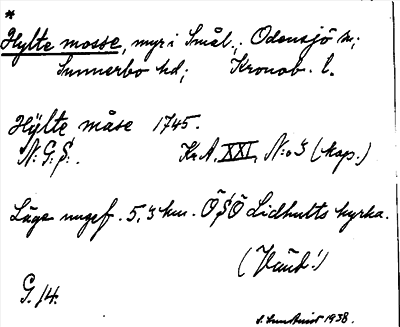 *
Hylte mosse, myr i Smål., Odensjö sn;
Sunnerbo hd; Kronob. l.
Hÿlte måse 1745.
N: G: S:. Kr.A. XXI, N:o 3 (kap.)
Läge ungef. 5,3 km. Ö S Ö Lidhults kyrka.
G. 14.
1938.